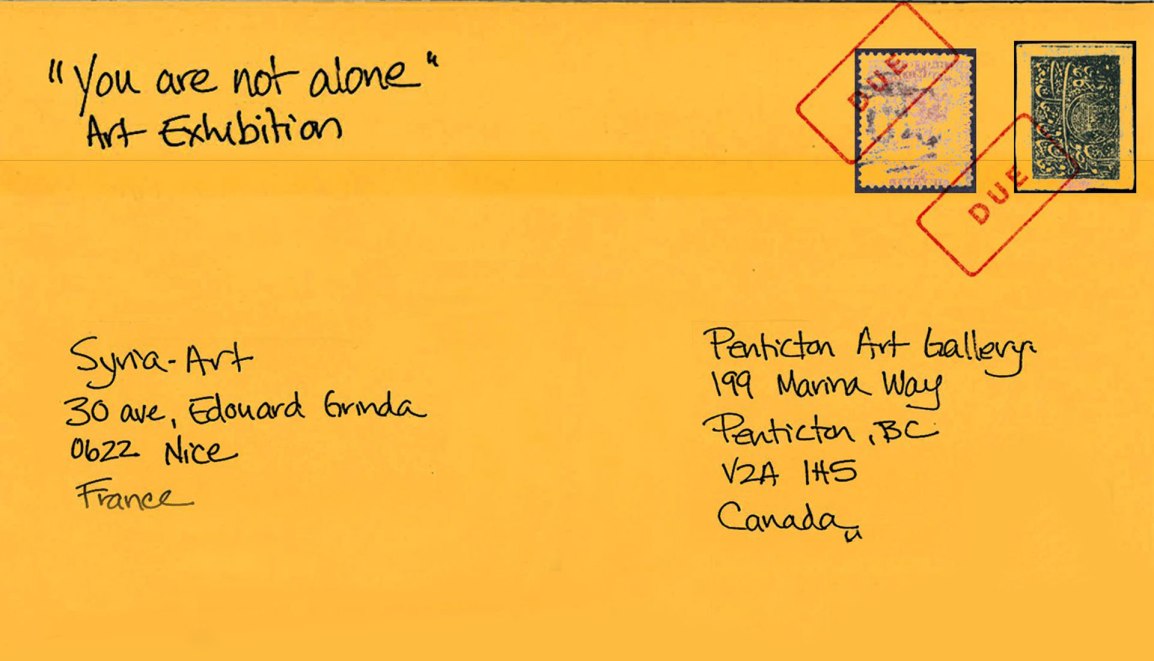 "You are not alone"
Art Exhibition
DUE
DUE
Syria-Art
30 ave, Edouard Grinda
0622 Nice
France
Penticton Art Gallery
199 Marina Way
Penticton, BC
V2A 1H5
Canada